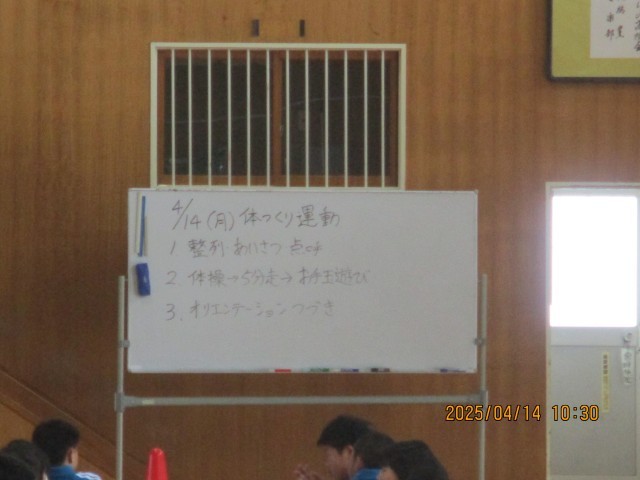 4/14(月) 体つくり運動
1 整列 あいさつ 点呼
2. 体操→5分走→お手玉遊び
3. オリエンテーションつづき
2025/04/14 10:30